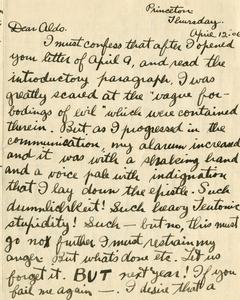 Princeton
Thursday
April 12-06
Dear Aldo.
I must confess that after I opened
your letter of April 9, and read the
introductory paragraph, I was
greatly scared at the "vague for-
bodings of evil" which were contained
therein. But as I progressed in the
communication, my alarm increased
and it was with a shaking hand
and a voice pale with indignation
that I lay down the epistle. Such
dumlichkeit! Such heavy Teutonic
stupidity! Such — but no, this must
go not further I must restrain my
anger But whats done etc. Let us
forget it. BUT next year! If you
fail me again —. I desire that a